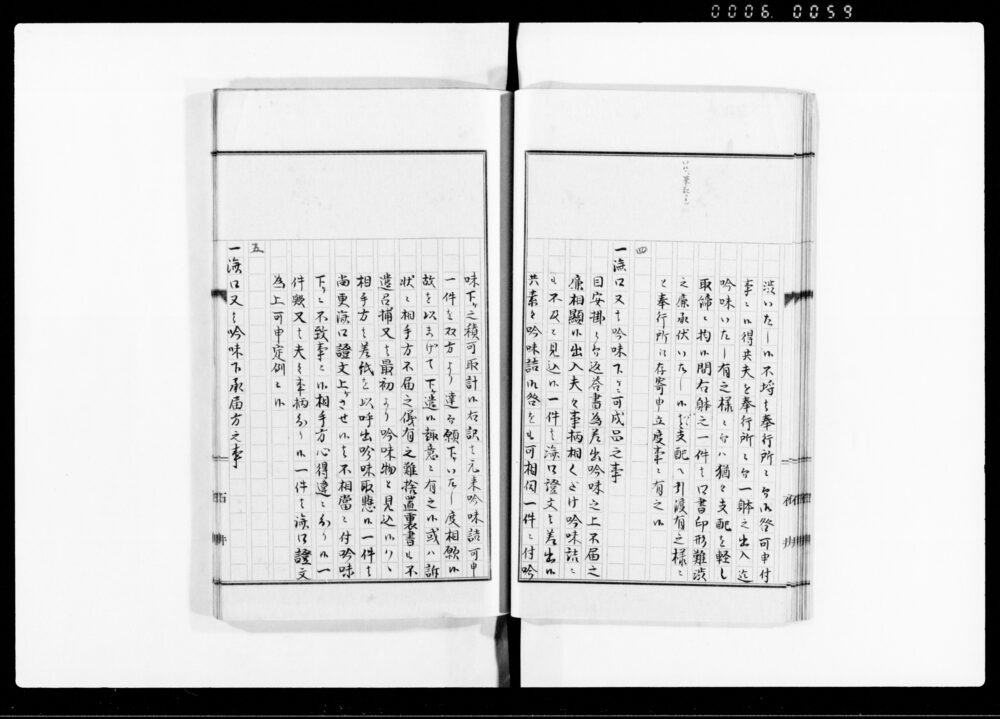 0006.0059
渋いたし候不埒は奉行所にて候咎可申付
事ニ候得共夫を奉行所にて一躰之出入迄
吟味いたし有之様にてハ猶々支配を軽し
取締ニ拘候間右躰之一件は口書印形難渋
之廉承伏いたし候ハヾ支配へ引渡有之様ニ
と奉行所に存寄申立度事ニ有之候
四
一済口又は吟味下ケニ可成品之事
目安掛ニて返答書為差出吟味之上不届之
廉相顕候出入夫々事柄相くだけ吟味詰ニ
も不及と見込候一件は済口證文を差出候
共素々吟味詰候咎をも可相伺一件ニ付吟
味下ケ之積可取計候右訳は元来吟味詰可申
一件を双方より達て願下いたし度相願候
故を以まげて下遣候趣意ニ有之候或ハ訴
状ニ相手方不届之儀有之難捨置裏書も不
遣召捕又は最初より吟味物と見込候ハヾ
相手方は差紙を以呼出吟味取懸候一件は
尚更済口證文上ケさせ候は不相當ニ付吟味
下ケニ不致事ニ候相手方心得違ニより候一
件或又は夫々事柄により候一件は済口證文
為上可申定例ニ候
五
一済口又は吟味下承届方之事